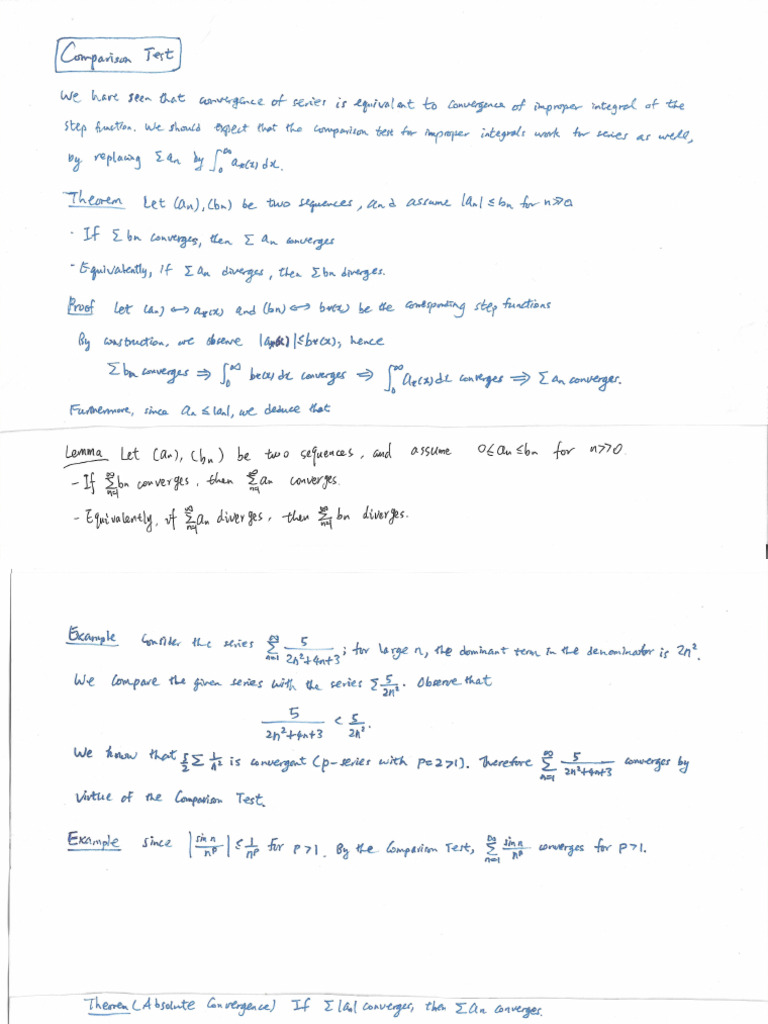 Comparison Test
We have seen that convergence of series is equivalent to convergence of improper integral of the
step function. We should expect that the comparison test for improper integrals work for series as well,
by replacing Σ an by ∫₀^∞ a_*(x)dx.
Theorem Let (an), (bn) be two sequences, and assume |an| ≤ bn for n≫0
· If Σ bn converges, then Σ an converges
- Equivalently, if Σ an diverges, then Σ bn diverges.
Proof Let (an) ↔ a_*(x) and (bn) ↔ b_*(x) be the corresponding step functions
By construction, we observe |a_*(x)| ≤ b_*(x), hence
Σ bn converges ⇒ ∫₀^∞ b_*(x)dx converges ⇒ ∫₀^∞ a_*(x)dx converges ⇒ Σ an converges.
Furthermore, since an ≤ |an|, we deduce that
Lemma Let (an), (bn) be two sequences, and assume 0 ≤ an ≤ bn for n>>0.
- If Σ_{n=1}^∞ bn converges, then Σ_{n=1}^∞ an converges.
- Equivalently, if Σ_{n=1}^∞ an diverges, then Σ_{n=1}^∞ bn diverges.
Example Consider the series Σ_{n=1}^∞ 5/(2n²+4n+3); for large n, the dominant term in the denominator is 2n².
We compare the given series with the series Σ 5/2n². Observe that
5/(2n²+4n+3) < 5/2n².
We know that 5/2 Σ 1/n² is convergent (p-series with p=2>1). Therefore Σ_{n=1}^∞ 5/(2n²+4n+3) converges by
virtue of the Comparison Test.
Example Since |sin n/n^p| ≤ 1/n^p for p>1. By the Comparison Test, Σ_{n=1}^∞ sin n/n^p converges for p>1.
Theorem (Absolute Convergence) If Σ |an| converges, then Σ an converges.